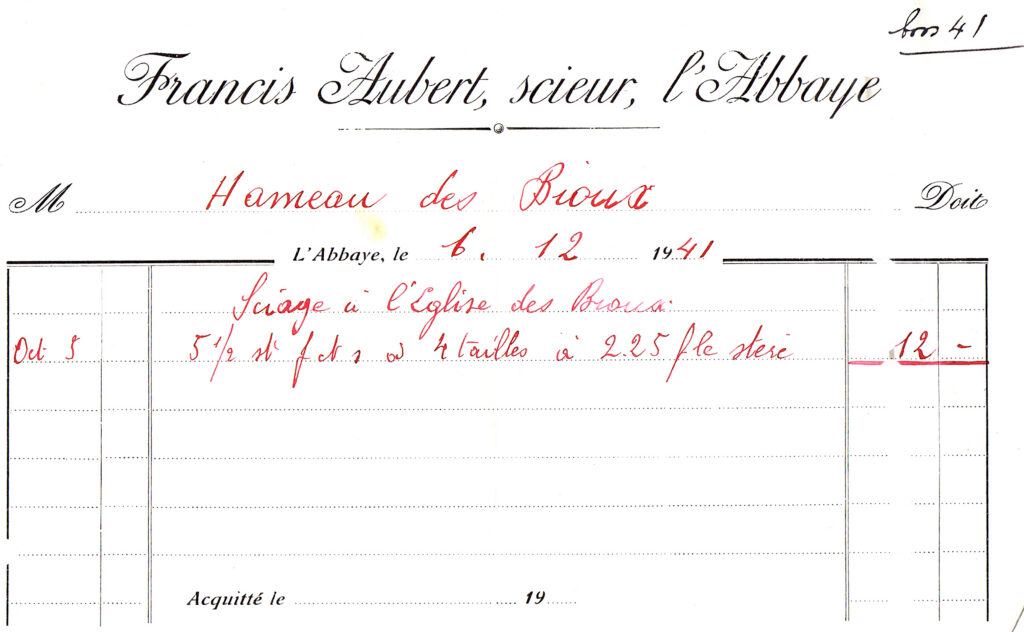 41
Francis Aubert, scieur, l'Abbaye
M Hameau des Bioux Doit
L'Abbaye, le 6. 12 1941
Sciage à l'Eglise des Bioux
Oct 5 5 1/2 st à 4 tailles à 2.25 f le stère 12 -
Acquitté le 19